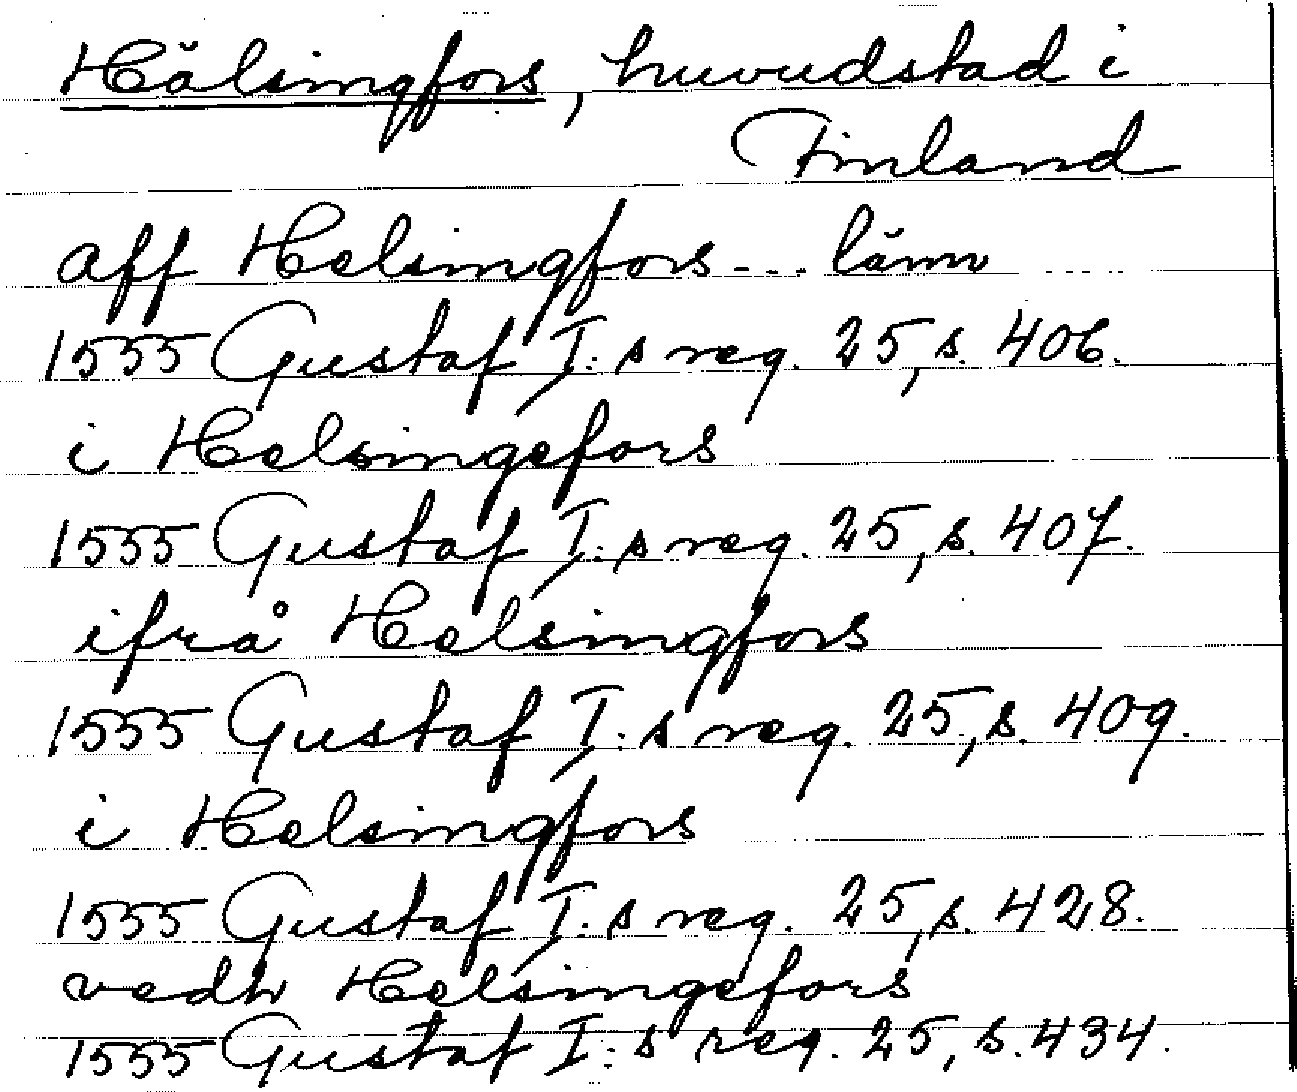 Hälsingfors, huvudstad i
Finland
aff Helsingfors --- länn
1555 Gustaf I:s reg. 25, s. 406.
i Helsingefors
1555 Gustaf I:s reg. 25, s. 407.
ifrå Helsingfors
1555 Gustaf I:s reg. 25, s. 409.
i Helsingfors
1555 Gustaf I:s reg. 25, s. 428.
vedh Helsingefors
1555 Gustaf I:s reg. 25, s. 434.